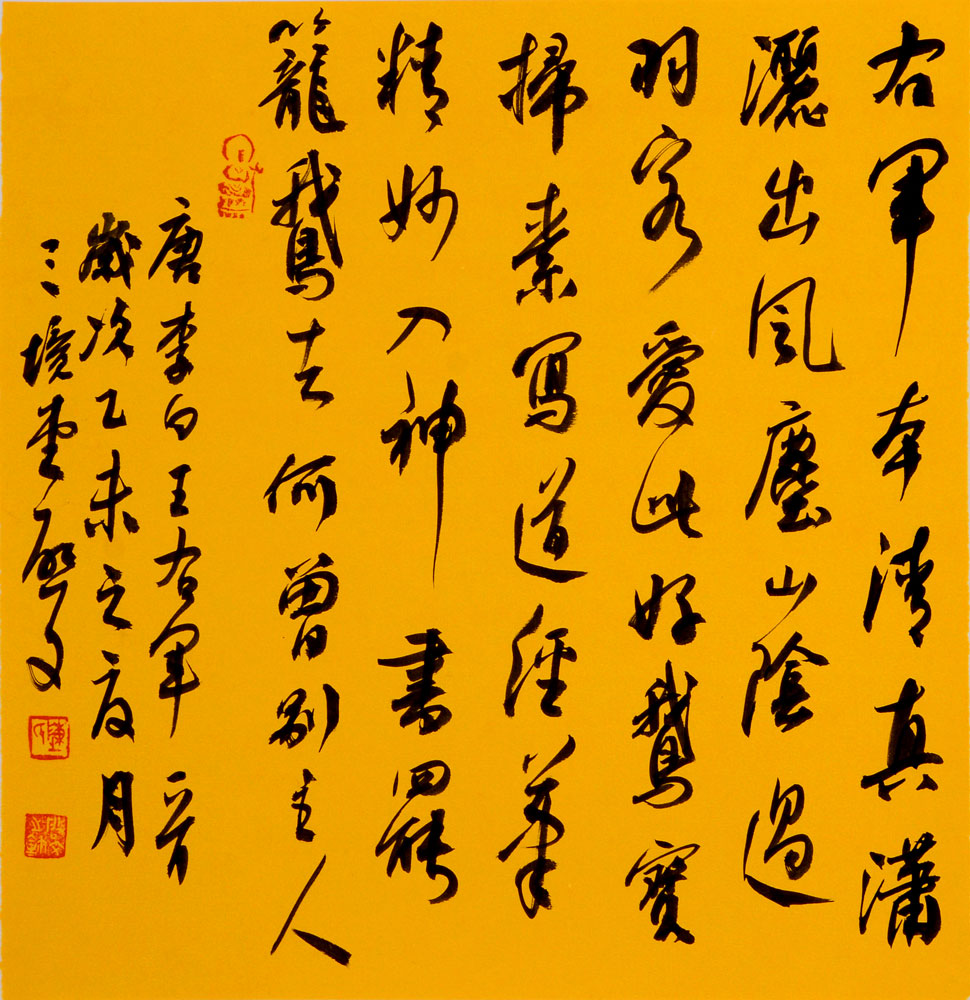 右軍本清真瀟
灑出風塵山陰過
羽客愛此好鵝賓
掃素寫道經筆
精妙入神書罷
籠鵝去何曾別主人
唐李白王右軍一首
歲次乙未之夏月
三境堂啓文